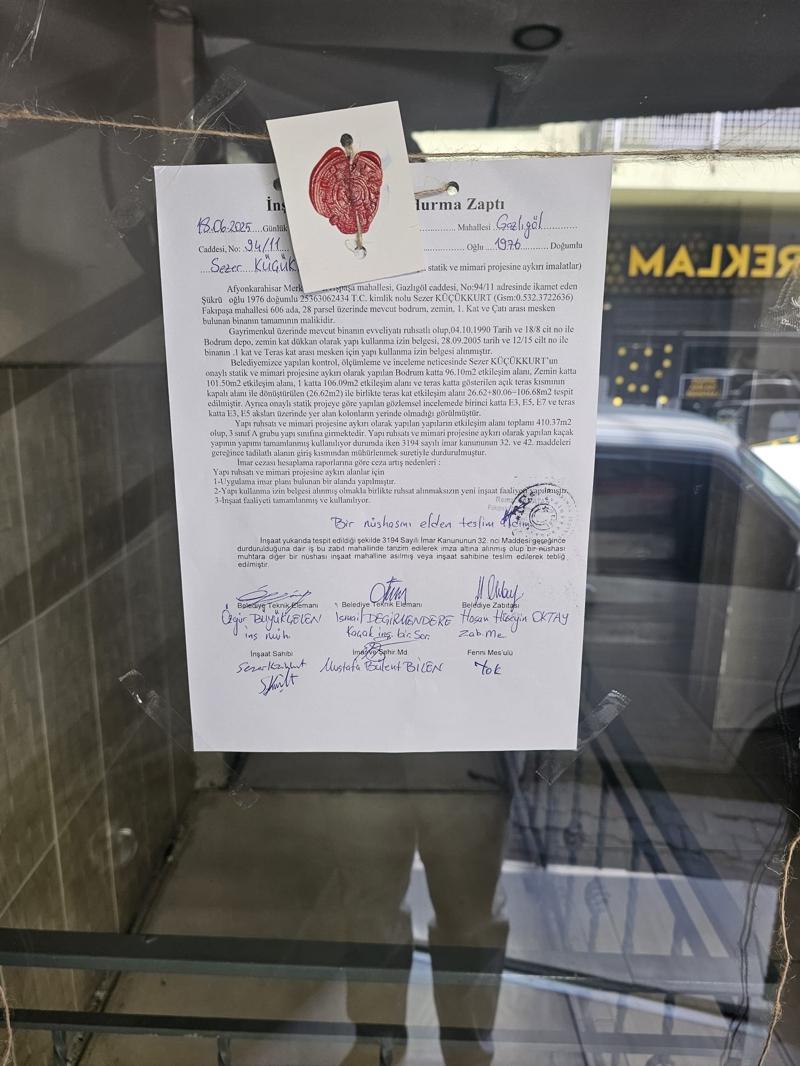 İnş durma Zaptı
18.06.2025 Günlük Mahallesi Gazlıgöl
Caddesi, No: 94/11 Oğlu 1976 Doğumlu
Sezer KÜÇÜK statik ve mimari projesine aykırı imalatlar)
Afyonkarahisar Merk paşa mahallesi, Gazlıgöl caddesi, No:94/11 adresinde ikamet eden
Şükrü oğlu 1976 doğumlu 25363062434 T.C. kimlik nolu Sezer KÜÇÜKKURT (Gsm:0.532.3722636)
Fakıpaşa mahallesi 606 ada, 28 parsel üzerinde mevcut bodrum, zemin, 1. Kat ve Çatı arası mesken
bulunan binanın tamamının malikidir.
Gayrimenkul üzerinde mevcut binanın evveliyatı ruhsatlı olup,04.10.1990 Tarih ve 18/8 cit no ile
Bodrum depo, zemin kat dükkan olarak yapı kullanma izin belgesi, 28.09.2005 tarih ve 12/15 cilt no ile
binanın .1 kat ve Teras kat arası mesken için yapı kullanma izin belgesi alınmıştır.
Belediyemizce yapılan kontrol, ölçümleme ve inceleme neticesinde Sezer KÜÇÜKKURT'un
onaylı statik ve mimari projesine aykırı olarak yapılan Bodrum katta 96.10m2 etkileşim alanı, Zemin katta
101.50m2 etkileşim alanı, 1 katta 106.09m2 etkileşim alanı ve teras katta gösterilen açık teras kısmının
kapalı alanı ile dönüştürülen (26.62m2) ile birlikte teras kat etkileşim alanı 26.62+80.06=106.68m2 tespit
edilmiştir. Ayrıca onaylı statik projeye göre yapılan gözlemsel incelemede birinci katta E3, E5, E7 ve teras
katta E3, E5 aksları üzerinde yer alan kolonların yerinde olmadığı görülmüştür.
Yapı ruhsatı ve mimari projesine aykırı olarak yapılan yapıların etkileşim alanı toplamı 410.37m2
olup, 3 sınıf A grubu yapı sınıfına girmektedir. Yapı ruhsatı ve mimari projesine aykırı olarak yapılan kaçak
yapının yapımı tamamlanmış kullanılıyor durumda iken 3194 sayılı imar kanununun 32. ve 42. maddeleri
gereğince tadilatlı alanın giriş kısmından mühürlenmek suretiyle durdurulmuştur.
İmar cezası hesaplama raporlarına göre ceza artış nedenleri :
Yapı ruhsatı ve mimari projesine aykırı alanlar için
1-Uygulama imar planı bulunan bir alanda yapılmıştır.
2-Yapı kullanma izin belgesi alınmış olmakla birlikte ruhsat alınmaksızın yeni inşaat faaliyeti yapılmıştır
3-İnşaat faaliyeti tamamlanmış ve kullanılıyor.
Bir nüshasını elden teslim aldım
İnşaat yukarıda tespit edildiği şekilde 3194 Sayılı İmar Kanununun 32. nci Maddesi gereğince
durdurulduğuna dair iş bu zabıt mahallinde tanzim edilerek imza altına alınmış olup bir nüshası
muhtara diğer bir nüshası inşaat mahalline asılmış veya inşaat sahibine teslim edilerek tebliğ
edilmiştir.
Belediye Teknik Elemanı Belediye Teknik Elemanı Belediye Zabıtası
Özgür BÜYÜKÇELEN İsmail DEĞİRMENDERE Hasan Hüseyin OKTAY
inş müh. Kaçak inş. bir. Sor. Zab. Me.
İnşaat Sahibi İmar ve Şehir Md. Fenni Mes'ulü
Sezer Küçükkurt Mustafa Bülent BİLEN Yok
REKLAM